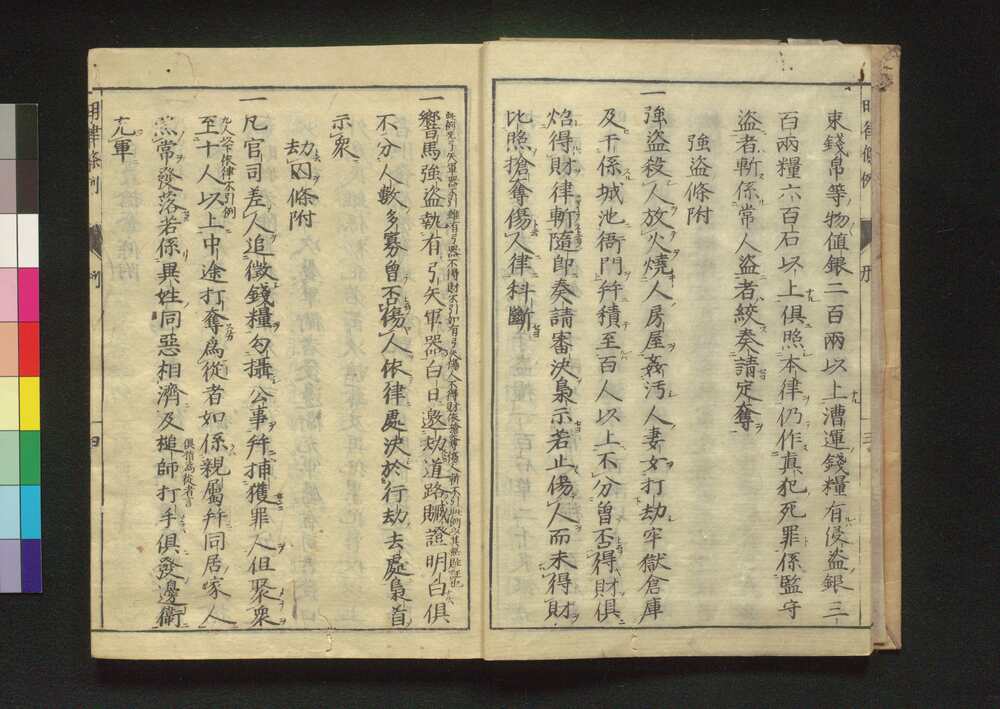 東錢帛等物値銀二百兩以上漕運錢糧有侵盜銀三
百兩糧六百石以上俱照本律仍作眞犯死罪係監守
盜者斬係常人盜者絞奏請定奪
強盜條附
一強盜殺人放火燒人房屋姦汚人妻女打劫牢獄倉庫
及干係城池衙門幷積至百人以上不分曾否得財俱
焰得財律斬隨卽奏請審決梟示若止傷人而未得財
比照搶奪傷人律科斷
一響馬強盜執有弓矢軍器白日邀劫道路贓證明白俱
不分人數多寡曾否傷人依律處決於行劫去處梟首
示衆
劫囚條附
一凡官司差人追徵錢糧勾攝公事幷捕獲罪人但聚衆
九人以下依律不引例
至十人以上中途打奪爲從者如係親屬幷同居家人
照常發落若係異姓同惡相濟及槌師打手俱發邊衛
俱指爲從者言
充軍
明律條例